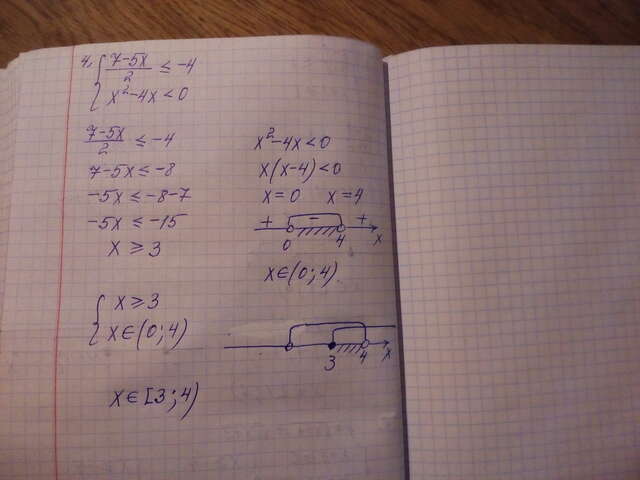 4, { (7-5x)/2 ≤ -4
x²-4x<0
(7-5x)/2 ≤ -4
7-5x ≤ -8
-5x ≤ -8-7
-5x ≤ -15
x ≥ 3
x²-4x<0
x(x-4)<0
x=0 x=4
+ - +
0 4 x
x∈(0;4)
{ x ≥ 3
x∈(0;4)
3 4 x
x∈[3;4)